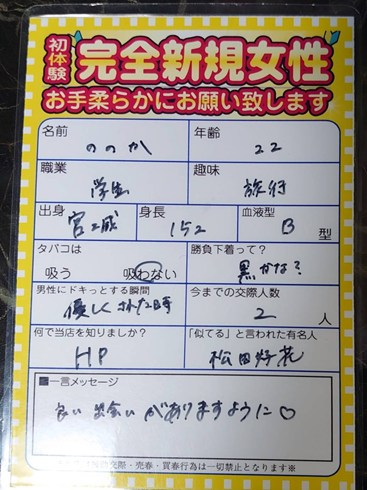 初体験
完全新規女性
お手柔らかにお願い致します
名前 年齢
ののか 22
職業 趣味
学生 旅行
出身 身長 血液型
宮城 152 B型
タバコは 勝負下着って?
吸う 吸わない 黒かな?
男性にドキっとする瞬間 今までの交際人数
優しくされた時 2人
何で当店を知りましたか? 「似てる」と言われた有名人
HP 松田好花
■一言メッセージ
良い出会いがありますように♡
交際・売春・買春行為は一切禁止となります※